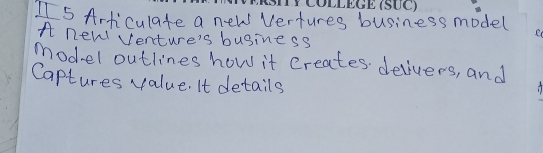 COLLEGE (SUC)
II 5 Articulate a new Vertures business model
A new Venture's business
model outlines how it creates. delivers, and
Captures value. It details